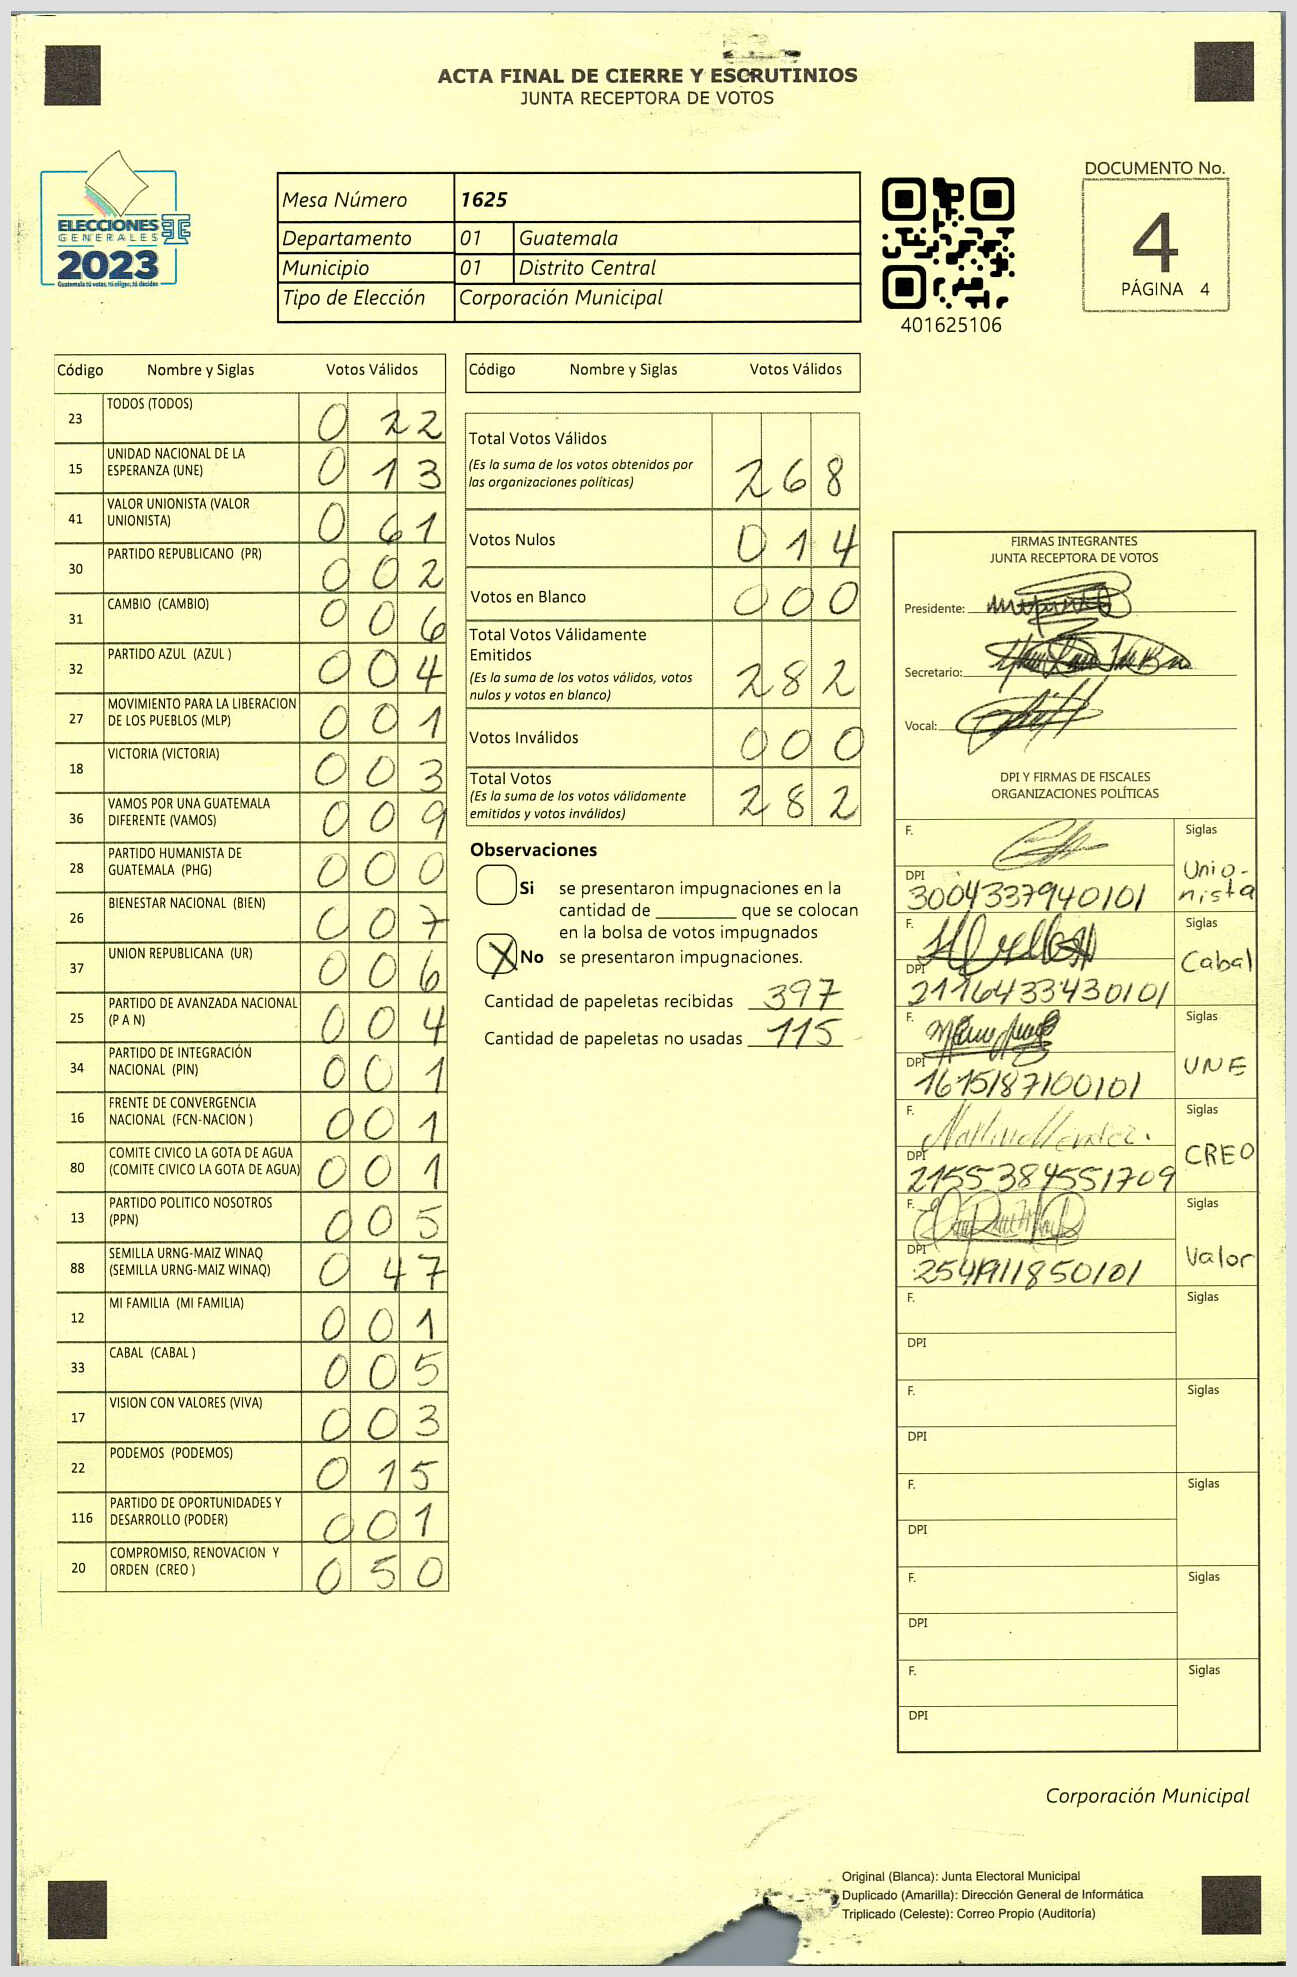 ACTA FINAL DE CIERRE Y ESCRUTINIOS
JUNTA RECEPTORA DE VOTOS
ELECCIONES
GENERALES
2023
Guatemala tú votas, tú eliges, tú decides
Mesa Número 1625
Departamento 01 Guatemala
Municipio 01 Distrito Central
Tipo de Elección Corporación Municipal
401625106
DOCUMENTO No.
4
PÁGINA 4
Código Nombre y Siglas Votos Válidos
23 TODOS (TODOS) 0 2 2
15 UNIDAD NACIONAL DE LA ESPERANZA (UNE) 0 1 3
41 VALOR UNIONISTA (VALOR UNIONISTA) 0 6 1
30 PARTIDO REPUBLICANO (PR) 0 0 2
31 CAMBIO (CAMBIO) 0 0 6
32 PARTIDO AZUL (AZUL ) 0 0 4
27 MOVIMIENTO PARA LA LIBERACION DE LOS PUEBLOS (MLP) 0 0 1
18 VICTORIA (VICTORIA) 0 0 3
36 VAMOS POR UNA GUATEMALA DIFERENTE (VAMOS) 0 0 9
28 PARTIDO HUMANISTA DE GUATEMALA (PHG) 0 0 0
26 BIENESTAR NACIONAL (BIEN) 0 0 7
37 UNION REPUBLICANA (UR) 0 0 6
25 PARTIDO DE AVANZADA NACIONAL (P A N) 0 0 4
34 PARTIDO DE INTEGRACIÓN NACIONAL (PIN) 0 0 1
16 FRENTE DE CONVERGENCIA NACIONAL (FCN-NACION ) 0 0 1
80 COMITE CIVICO LA GOTA DE AGUA (COMITE CIVICO LA GOTA DE AGUA) 0 0 1
13 PARTIDO POLITICO NOSOTROS (PPN) 0 0 5
88 SEMILLA URNG-MAIZ WINAQ (SEMILLA URNG-MAIZ WINAQ) 0 4 7
12 MI FAMILIA (MI FAMILIA) 0 0 1
33 CABAL (CABAL ) 0 0 5
17 VISION CON VALORES (VIVA) 0 0 3
22 PODEMOS (PODEMOS) 0 1 5
116 PARTIDO DE OPORTUNIDADES Y DESARROLLO (PODER) 0 0 1
20 COMPROMISO, RENOVACION Y ORDEN (CREO ) 0 5 0
Código Nombre y Siglas Votos Válidos
Total Votos Válidos
(Es la suma de los votos obtenidos por
las organizaciones políticas) 2 6 8
Votos Nulos 0 1 4
Votos en Blanco 0 0 0
Total Votos Válidamente
Emitidos
(Es la suma de los votos válidos, votos
nulos y votos en blanco) 2 8 2
Votos Inválidos 0 0 0
Total Votos
(Es la suma de los votos válidamente
emitidos y votos inválidos) 2 8 2
Observaciones
Si se presentaron impugnaciones en la
cantidad de ________ que se colocan
en la bolsa de votos impugnados
X No se presentaron impugnaciones.
Cantidad de papeletas recibidas 397
Cantidad de papeletas no usadas 115
FIRMAS INTEGRANTES
JUNTA RECEPTORA DE VOTOS
Presidente:
Secretario:
Vocal:
DPI Y FIRMAS DE FISCALES
ORGANIZACIONES POLÍTICAS
F. Siglas
Unio-
nista
DPI
3004337940101
F. Siglas
Cabal
DPI
2116433430101
F. Siglas
UNE
DPI
1615187100101
F. Siglas
CREO
DPI
2155384551709
F. Siglas
Valor
DPI
2541911850101
F. Siglas
DPI
F. Siglas
DPI
F. Siglas
DPI
F. Siglas
DPI
F. Siglas
DPI
Corporación Municipal
Original (Blanca): Junta Electoral Municipal
Duplicado (Amarilla): Dirección General de Informática
Triplicado (Celeste): Correo Propio (Auditoría)